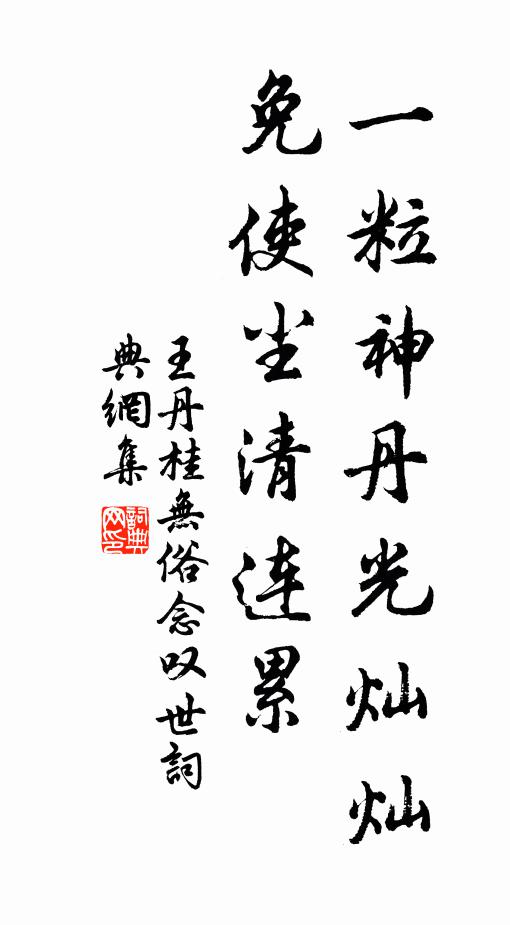 一粒神丹光灿灿
免使尘清连累
王丹桂無俗念叹世詞
典網集
詞典網印